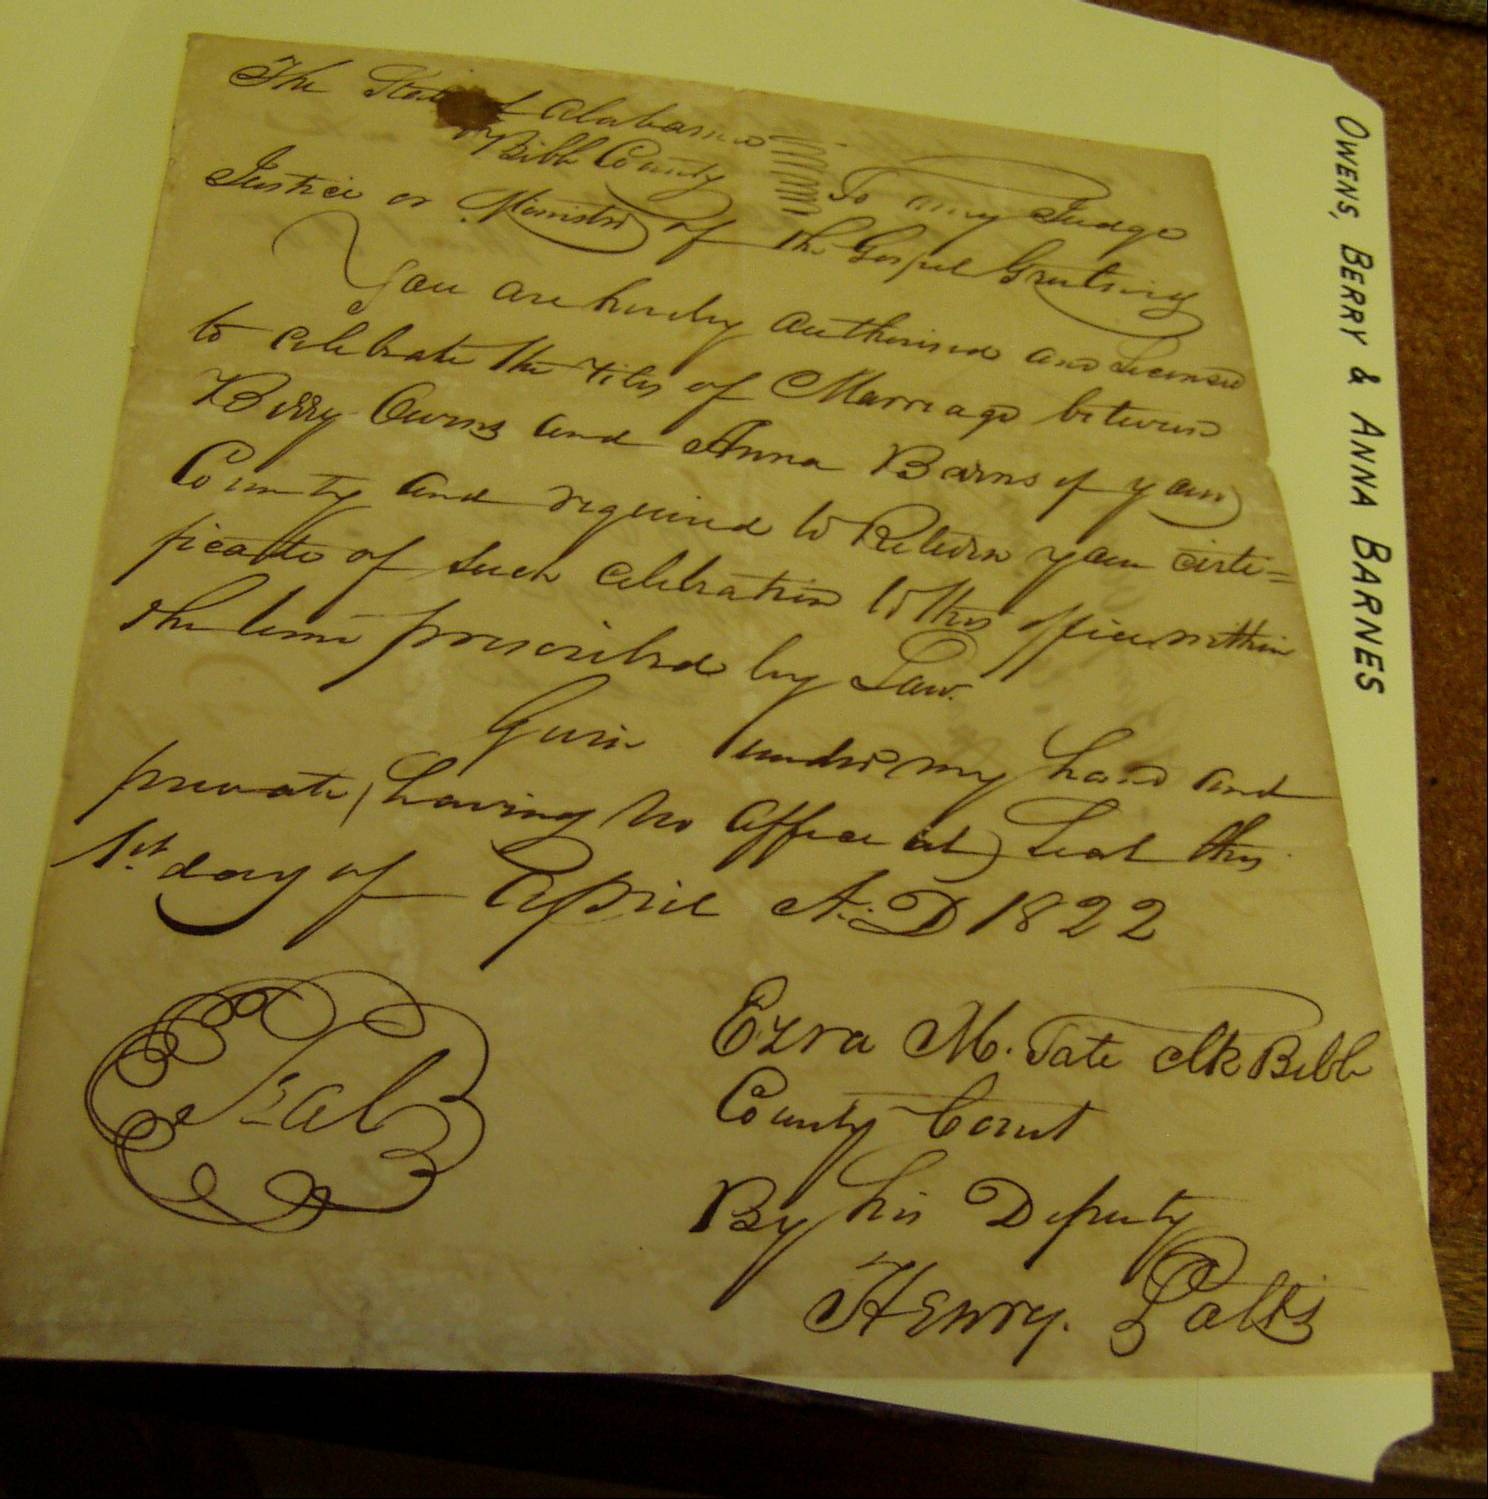 The State of Alabama
Bibb County To any Judge
Justice or Minister of the Gospel Greeting
You are hereby authorised and Licensed
to celebrate the rites of Marriage between
Berry Owens and Anna Barns of your
County and required to Return your certi=
ficate of such celebration to this office within
the time prescribed by Law.
Given under my hand and
private, (having no office al) Seal this
1st day of April A.D 1822
Seal
Ezra M. Tate Clk Bibb
County Court
By his Deputy
Henry.
OWENS, BERRY & ANNA BARNES